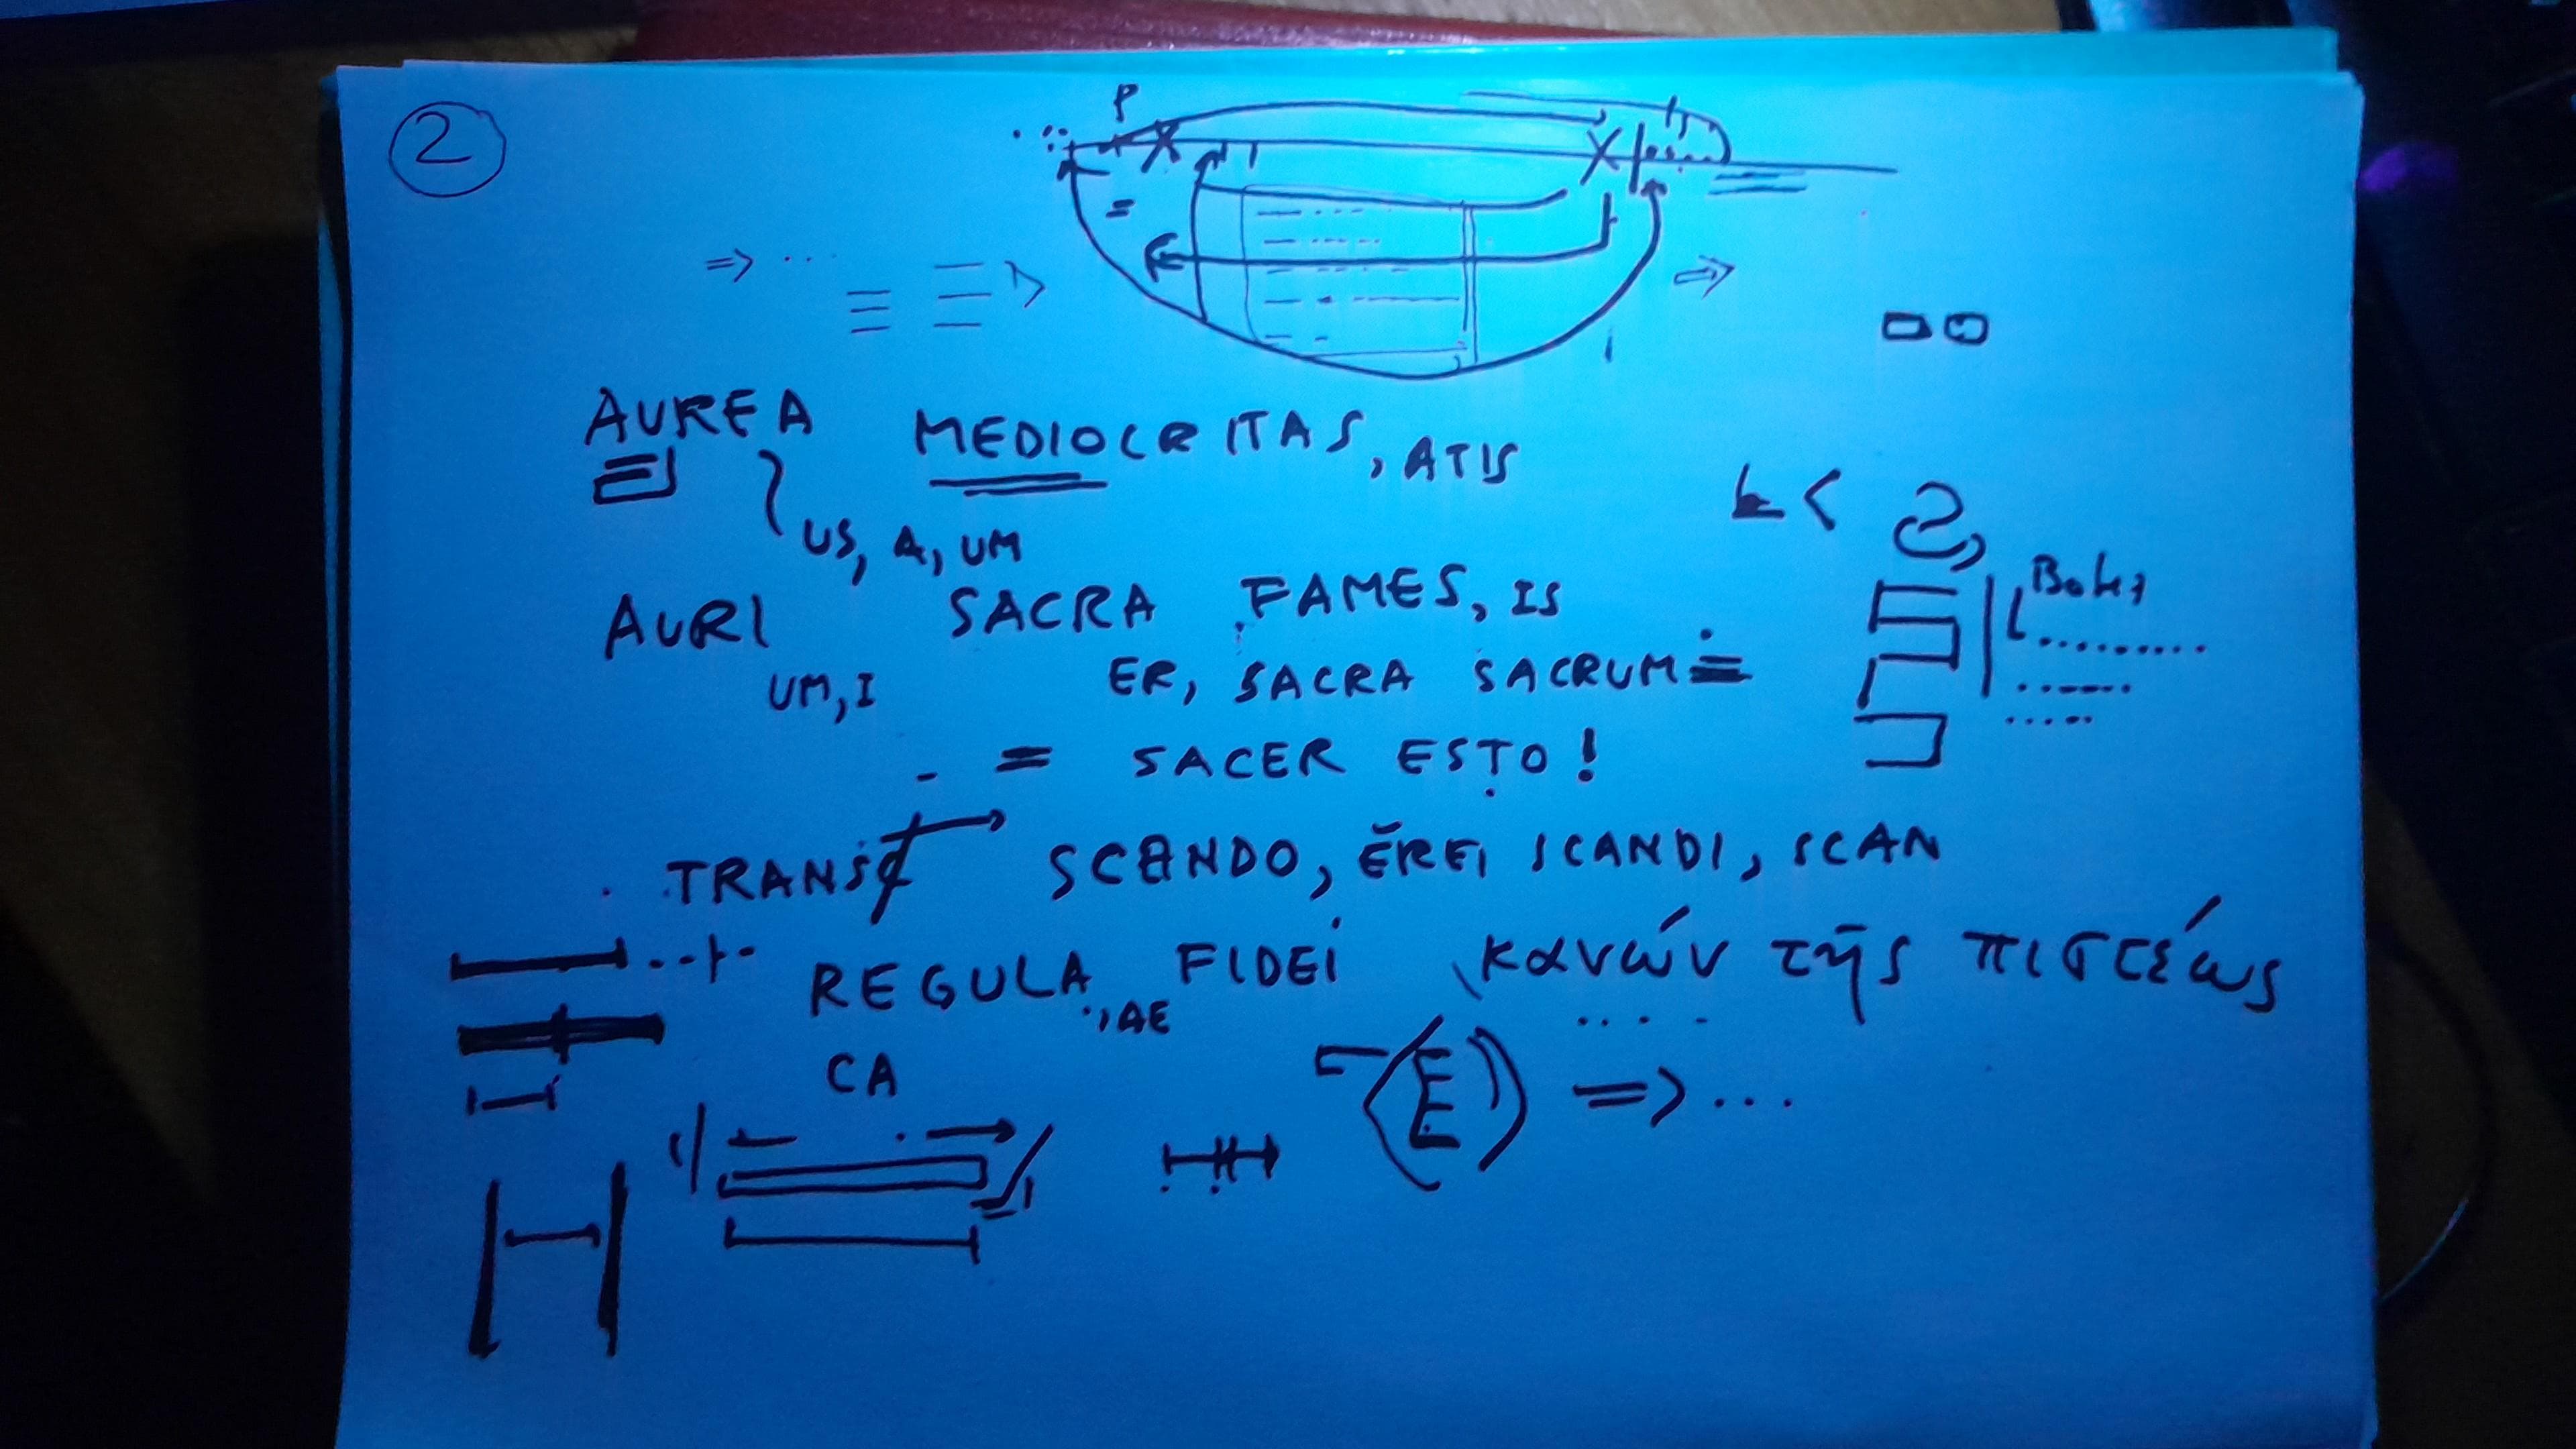 2
P
AUREA MEDIOCRITAS, ATIS
US, A, UM
AURI SACRA FAMES, IS
UM, I ER, SACRA SACRUM =
= SACER ESTO!
TRANS SCANDO, ĔREI SCANDI, SCAN
REGULA, AE FIDEI κανών τῆς πιστέως
CA
E => ...